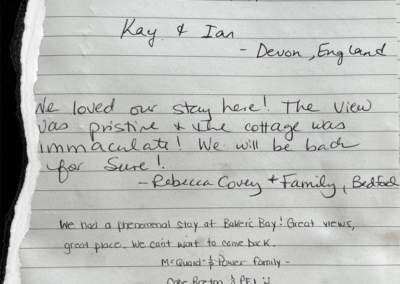 Kay & Ian
- Devon, England
We loved our stay here! The view
was pristine & the cottage was
immaculate! We will be back
for Sure!
- Rebecca Covey + Family, Bedford
We had a phenomenal stay at Bakeric Bay! Great views,
great place. We can't wait to come back.
McQuaid & Power family -
Cape Breton & PEI